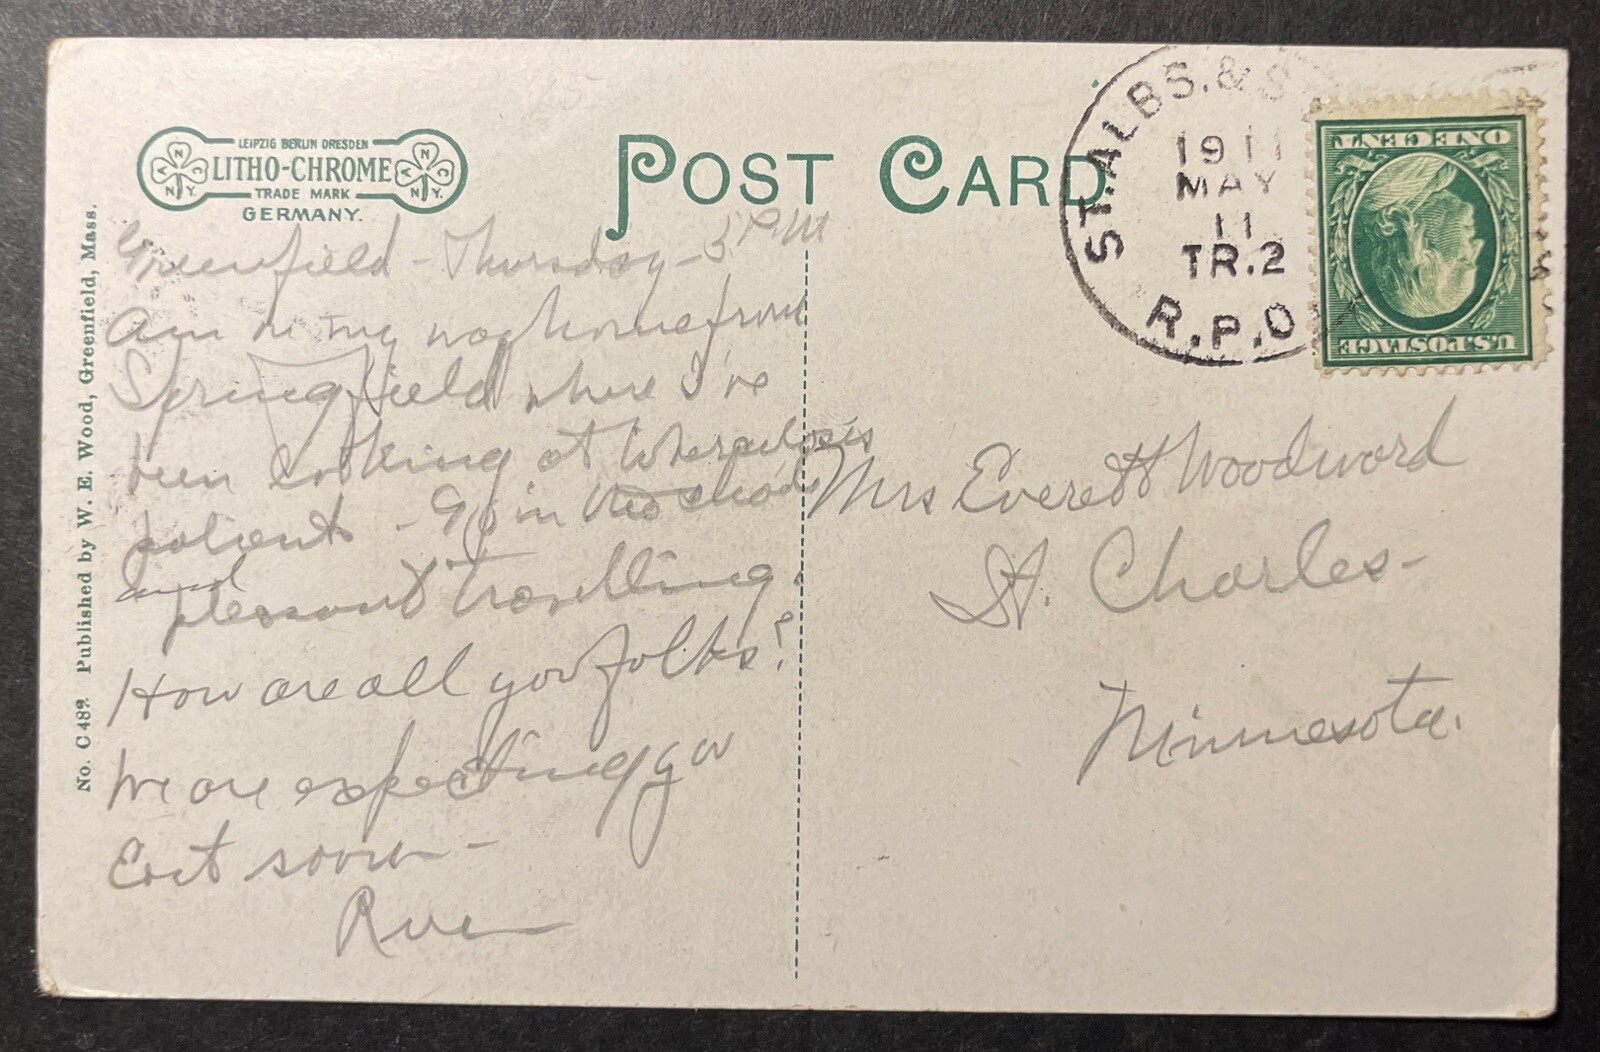 LEIPZIG BERLIN DRESDEN
LITHO-CHROME
TRADE MARK
GERMANY.
POST CARD
ST. ALBS. &
1911
MAY
11
TR.2
R.P.O
ONE CENT
U.S. POSTAGE
No. C 482. Published by W. E. Wood, Greenfield, Mass.
Greenfield - Thursday - 3 PM
Am on my way home from
Springfield where I've
been looking at tuberculosis
patients - 90 in the shade
and
pleasant travelling.
How are all you folks?
We are expecting you
East soon -
Rue
Mrs Everett Woodward
St. Charles -
Minnesota.